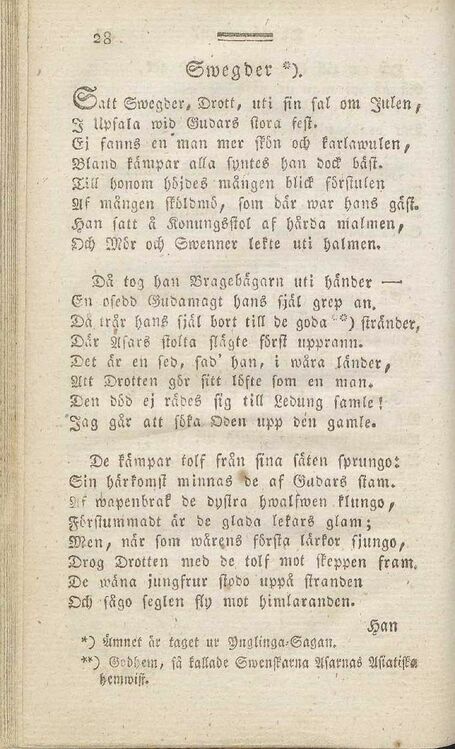 28
Swegder *).
Satt Swegder, Drott, uti sin sal om Julen,
I Upsala wid Gudars stora fest.
Ej fanns en man mer skön och karlawulen,
Bland kämpar alla syntes han dock bäst.
Till honom höjdes mången blick förstulen
Af mången sköldmö, som där war hans gäst.
Han satt å Konungsstol af hårda malmen,
Och Mör och Swenner lekte uti halmen.
Då tog han Bragebägarn uti händer —
En osedd Gudamagt hans själ grep an.
Då trår hans själ bort till de goda **) stränder,
Där Asars stolta slägte först upprann.
Det är en sed, sad' han, i wåra länder,
Att Drotten gör sitt löfte som en man.
Den död ej rädes sig till Ledung samle!
Jag går att söka Oden upp den gamle.
De kämpar tolf från sina säten sprungo:
Sin härkomst minnas de af Gudars stam.
Af wapenbrak de dystra hwalfwen klungo,
Förstummadt är de glada lekars glam;
Men, när som wårens första lärkor sjungo,
Drog Drotten med de tolf mot skeppen fram.
De wäna jungfrur stodo uppå stranden
Och sågo seglen fly mot himlaranden.
Han
*) Ämnet är taget ur Ynglinga-Sagan.
**) Godhem, så kallade Swenskarna Asarnas Asiatiska
hemwist.